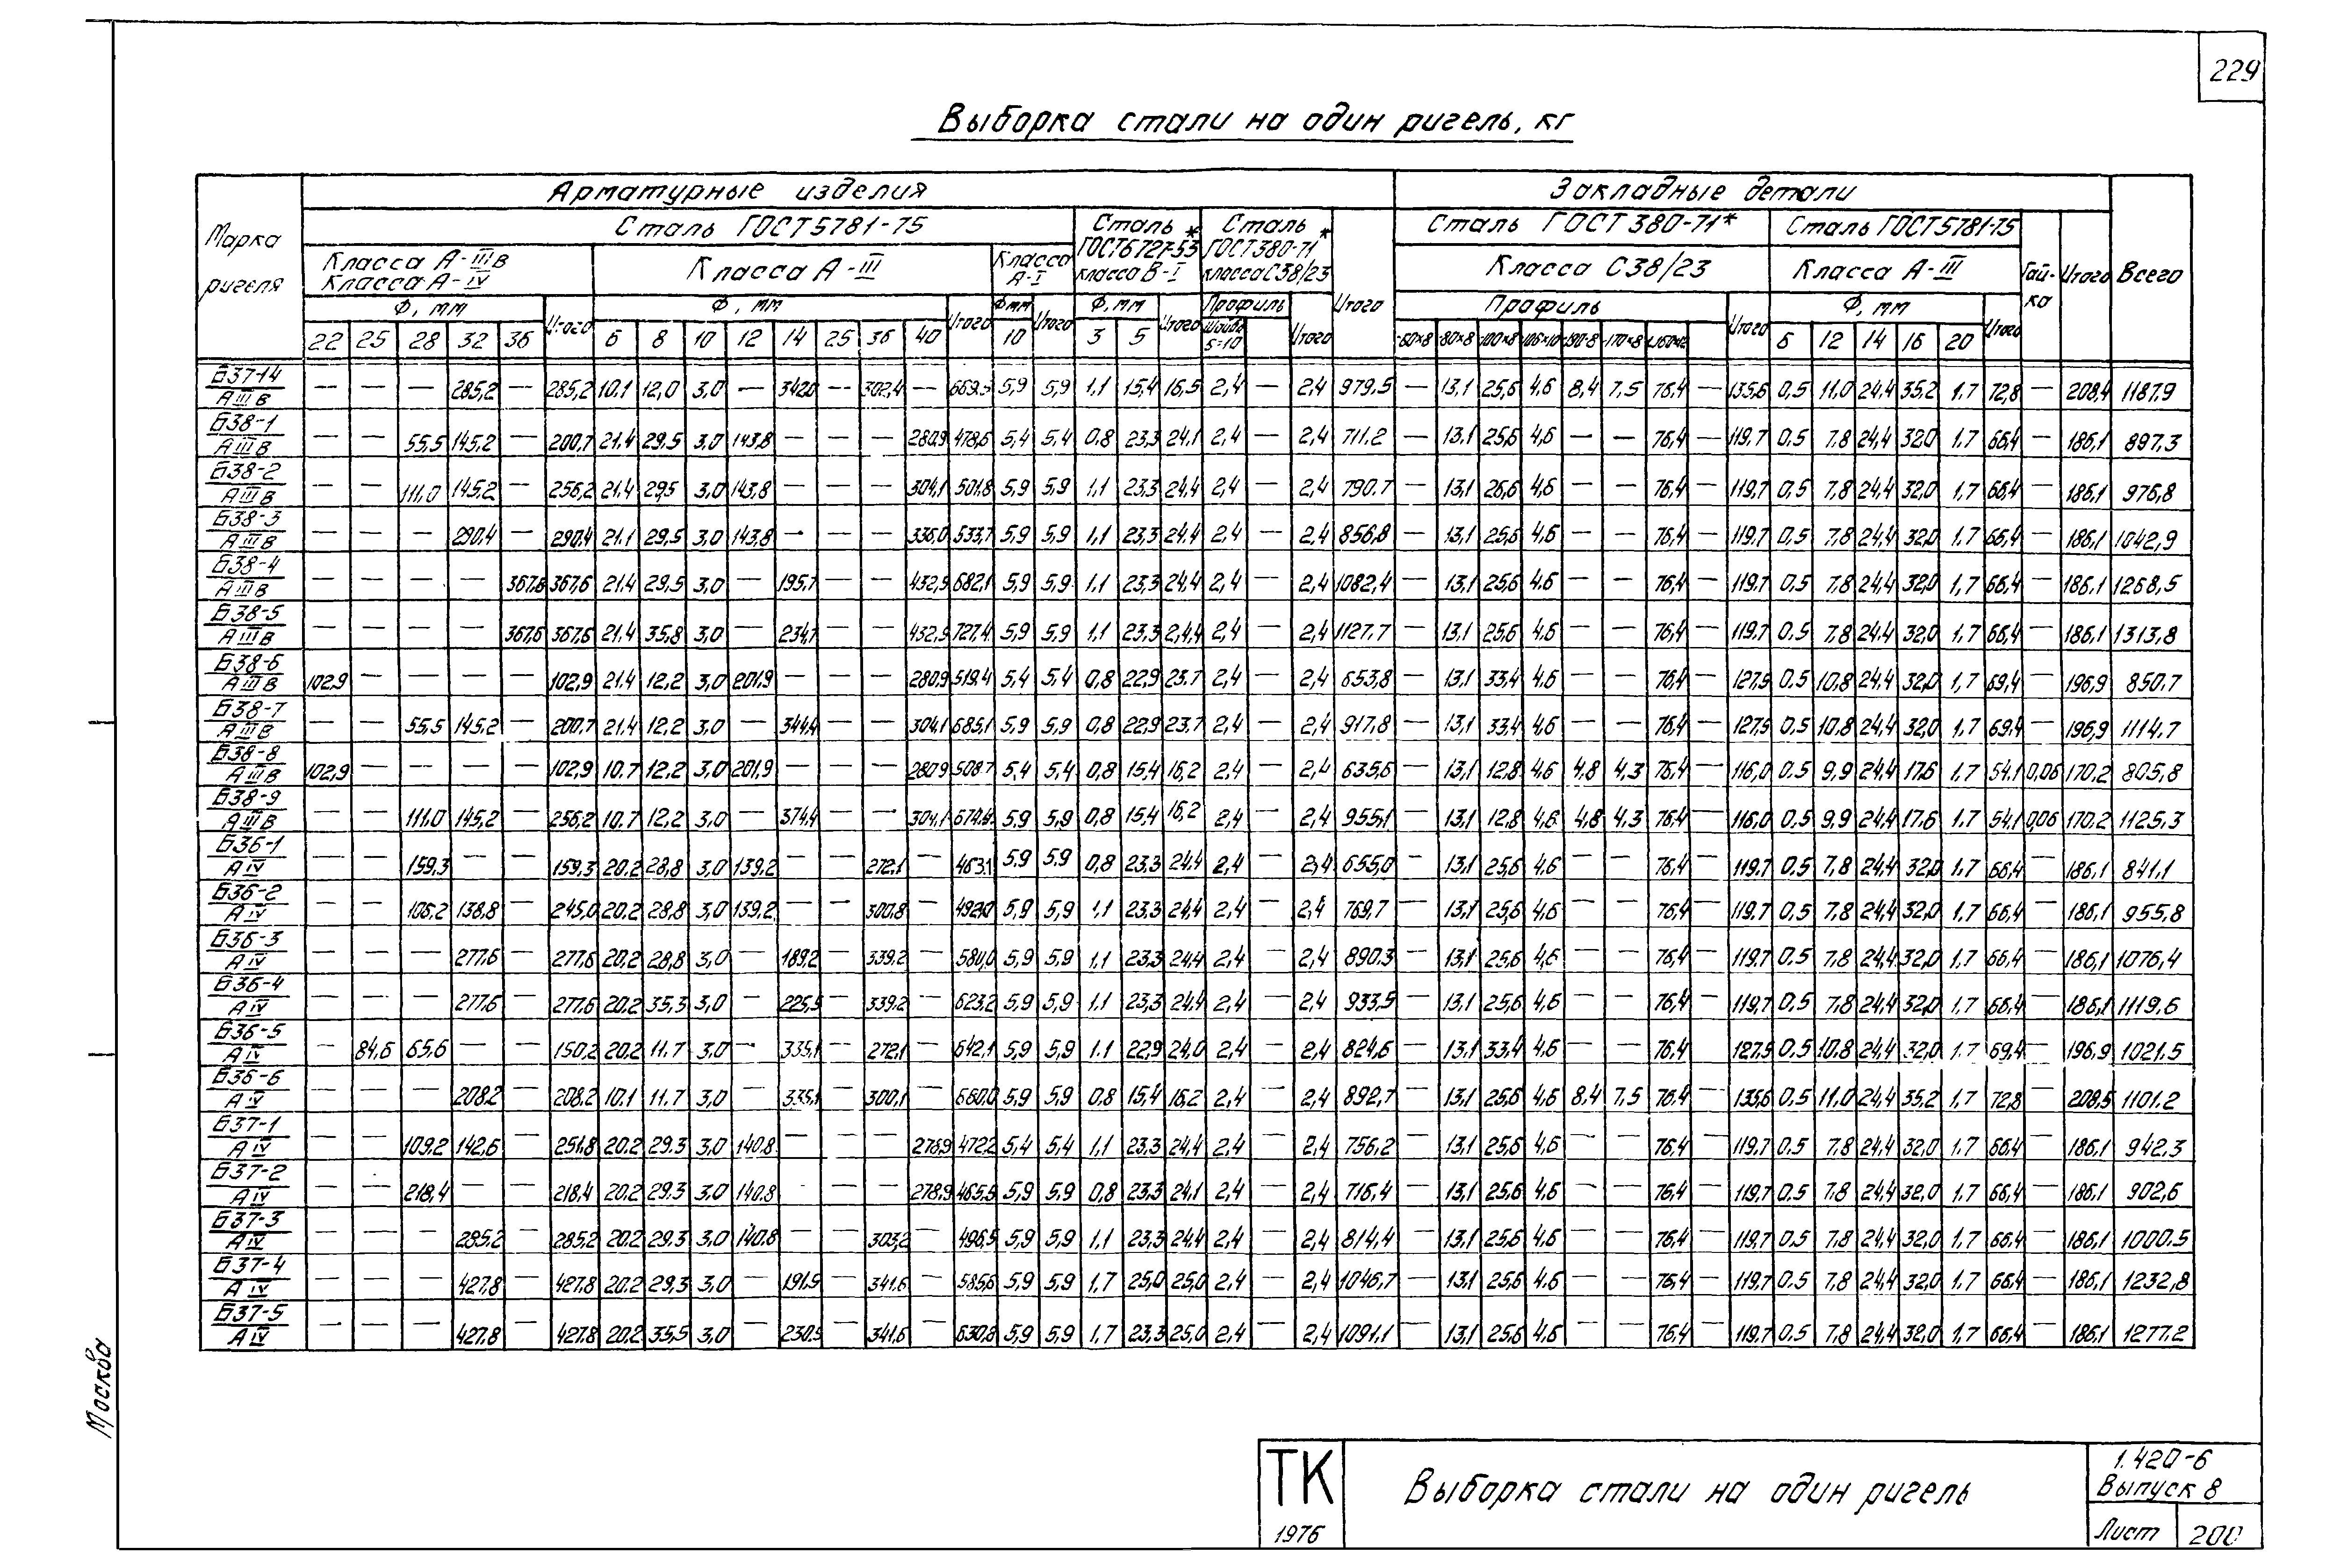 229
Выборка стали на один ригель, кг
Марка ригеля
Арматурные изделия
Закладные детали
Всего
Сталь ГОСТ 5781-75
Сталь * ГОСТ 6727-53 класса В-I
Сталь * ГОСТ 380-71 класса С38/23
Итого
Сталь ГОСТ 380-71*
Сталь ГОСТ 5781-75
Гай-ка
Итого
Класса А-IIIВ Класса А-IV
Класса А-III
Класса А-I
Класса С38/23
Класса А-III
Ф, мм Итого Ф, мм Итого Ф мм Итого Ф, мм Итого Профиль Итого Профиль Итого Ф, мм Итого
22 25 28 32 36 6 8 10 12 14 25 36 40 10 3 5 Шайба S=10 -80×8 -100×8 -170×8 6 12 14 16 20
Б37-14 АIIIВ — — — 285,2 — 285,2 10.1 12,0 3,0 — 342.0 — 302,4 — 669.5 5,9 5,9 1.1 15,4 16,5 2,4 — 2,4 979,5 — 13,1 25,6 4,6 8,4 7,5 76,4 — 135,6 0,5 11,0 24,4 35,2 1,7 72,8 — 208,4 1187,9
Б38-1 АIIIВ — — 55,5 145.2 — 200,7 21.4 29.5 3,0 143,8 — — — 280.9 478,6 5,4 5,4 0,8 23.3 24.1 2,4 — 2,4 711.2 — 13,1 25,6 4,6 — — 76,4 — 119.7 0,5 7.8 24,4 32.0 1.7 66,4 — 186,1 897,3
Б38-2 АIIIВ — — 111.0 145.2 — 256,2 21.4 29,5 3,0 143,8 — — — 304,1 501.8 5,9 5,9 1.1 23,3 24,4 2,4 — 2,4 790.7 — 13,1 26,6 4,6 — — 76,4 — 119,7 0,5 7,8 24,4 32,0 1,7 66,4 — 186,1 976,8
Б38-3 АIIIВ — — — 290,4 — 290,4 21.1 29,5 3,0 143,8 — — — 336,0 533,7 5,9 5,9 1,1 23,3 24,4 2,4 — 2,4 856,8 — 13,1 25,6 4,6 — — 76,4 — 119.7 0,5 7,8 24,4 32,0 1.7 66,4 — 186,1 1042,9
Б38-4 АIIIВ — — — — 367,6 367,6 21.4 29,5 3,0 — 195,7 — — 432,9 682,1 5,9 5,9 1.1 23,3 24,4 2,4 — 2,4 1082,4 — 13,1 25,6 4,6 — — 76,4 — 119.7 0,5 7,8 24,4 32,0 1,7 66,4 — 186,1 1268,5
Б38-5 АIIIВ — — — — 367,6 367,6 21.4 35,8 3,0 — 234,7 — — 432,9 727.4 5,9 5,9 1.1 23,3 2,4.4 2,4 — 2,4 1127.7 — 13,1 25,6 4,6 — — 76,4 — 119.7 0,5 7,8 24.4 32,0 1,7 66,4 — 186,1 1313,8
Б38-6 АIIIВ 102,9 — — — — 102,9 21.4 12,2 3,0 201,9 — — — 280,9 519.4 5,4 5,4 0,8 22,9 23.7 2,4 — 2,4 653,8 — 13,1 33,4 4,6 — — 76,4 — 127,9 0,5 10,8 24,4 32,0 1,7 69,4 — 196,9 850.7
Б38-7 АIIIВ — — 55,5 145.2 — 200,7 21.4 12.2 3,0 — 344,4 — — 304,1 685,1 5,9 5,9 0,8 22,9 23,7 2,4 — 2,4 917,8 — 13,1 33,4 4,6 — — 76,4 — 127,9 0,5 10,8 24,4 32,0 1,7 69,4 — 196,9 1114.7
Б38-8 АIIIВ 102,9 — — — — 102,9 10.7 12,2 3,0 201,9 — — — 280,9 508,7 5,4 5,4 0,8 15,4 16,2 2,4 — 2,4 635,6 — 13,1 12,8 4,6 4,8 4,3 76,4 — 116,0 0,5 9,9 24,4 17,6 1,7 54,1 0,06 170,2 805,8
Б38-9 АIIIВ — — 111.0 145.2 — 256,2 10.7 12,2 3,0 — 374,4 — — 304,1 5,9 5,9 0,8 15,4 16,2 2,4 — 2,4 955,1 — 13,1 12,8 4,6 4,8 4,3 76,4 — 116,0 0,5 9,9 24,4 17,6 1.7 54,1 0,06 170.2 1125.3
Б36-1 АIV — — 159,3 — — 159,3 20.2 28,8 3,0 139,2 — — 272,1 463.1 5,9 5,9 0,8 23,3 24,4 2,4 — 2,4 655,0 — 13,1 25,6 4,6 — — 76,4 — 119,7 0,5 7,8 24,4 32,0 1,7 66,4 — 186,1 841.1
Б36-2 АIV — — 106.2 138,8 — 245,0 20.2 28,8 3,0 139,2 — — 300,8 — 492,0 5,9 5,9 1.1 23,3 24,4 2,4 — 2,4 769,7 — 13,1 25,6 4,6 — — 76,4 — 119,7 0,5 7,8 24,4 32,0 1,7 66,4 — 186,1 955,8
Б36-3 АIV — — — 277,6 — 277,6 20.2 28,8 3,0 — 189.2 — 339.2 — 584,0 5,9 5,9 1.1 23,3 24,4 2,4 — 2,4 890.3 — 13,1 25,6 4,6 — — 76,4 — 119.7 0,5 7,8 24,4 32,0 1.7 66,4 — 186,1 1076,4
Б36-4 АIV — — — 277,6 — 277,6 20.2 35,3 3,0 — 225,9 — 339.2 — 623,2 5,9 5,9 1.1 23,3 24,4 2,4 — 2,4 933,5 — 13,1 25,6 4,6 — — 76,4 — 119,7 0,5 7,8 24,4 32,0 1,7 66,4 — 186,1 1119.6
Б36-5 АIV — 84,6 65,6 — — 150,2 20.2 11.7 3,0 — 335,1 — 272,1 — 642,1 5,9 5,9 1.1 22,9 24,0 2,4 — 2,4 824,6 — 13,1 33,4 4,6 — — 76,4 — 127,9 0,5 10,8 24,4 32,0 1.7 69,4 — 196,9 1021.5
Б36-6 АIV — — — 208.2 — 208,2 10.1 11.7 3,0 — 335,1 — 300,1 — 660,0 5,9 5,9 0,8 15,4 16,2 2,4 — 2,4 892,7 — 13,1 25,6 4,6 8,4 7,5 76,4 — 135,6 0,5 11,0 24,4 35,2 1,7 72,8 — 208,5 1101.2
Б37-1 АIV — — 109.2 142.6 — 251,8 20.2 29.3 3,0 140.8 — — — 276,9 472,2 5,4 5,4 1.1 23,3 24,4 2,4 — 2,4 756,2 — 13,1 25,6 4,6 — — 76,4 — 119,7 0,5 7,8 24,4 32,0 1,7 66,4 — 186,1 942,3
Б37-2 АIV — — 218,4 — — 218,4 20.2 29.3 3,0 140.8 — — — 278,9 465,9 5,9 5,9 0,8 23,3 24,1 2,4 — 2,4 716,4 — 13,1 25,6 4,6 — — 76,4 — 119.7 0,5 7,8 24,4 32,0 1.7 66,4 — 186,1 902,6
Б37-3 АIV — — — 285.2 — 285,2 20.2 29.3 3,0 140.8 — — 303,2 496,5 5,9 5,9 1.1 23,3 24,4 2,4 — 2,4 814,4 — 13,1 25,6 4,6 — — 76,4 — 119,7 0,5 7,8 24,4 32,0 1.7 66,4 — 186,1 1000.5
Б37-4 АIV — — — 427,8 — 427,8 20.2 29,3 3,0 — 191,9 — 341.6 — 585,6 5,9 5,9 1,7 25,0 25,0 2,4 — 2,4 1046,7 — 13,1 25,6 4,6 — — 76,4 — 119,7 0,5 7,8 24,4 32,0 1.7 66,4 — 186,1 1232,8
Б37-5 АIV — — — 427,8 — 427,8 20.2 35,5 3,0 — 230,9 — 341,6 — 630,8 5,9 5,9 1,7 23,3 25,0 2,4 — 2,4 1091,1 — 13,1 25,6 4,6 — — 76,4 — 119,7 0,5 7,8 24,4 32,0 1,7 66,4 — 186,1 1277.2
Москва
ТК
1976
Выборка стали на один ригель
1.420-6
Выпуск 8
Лист 200